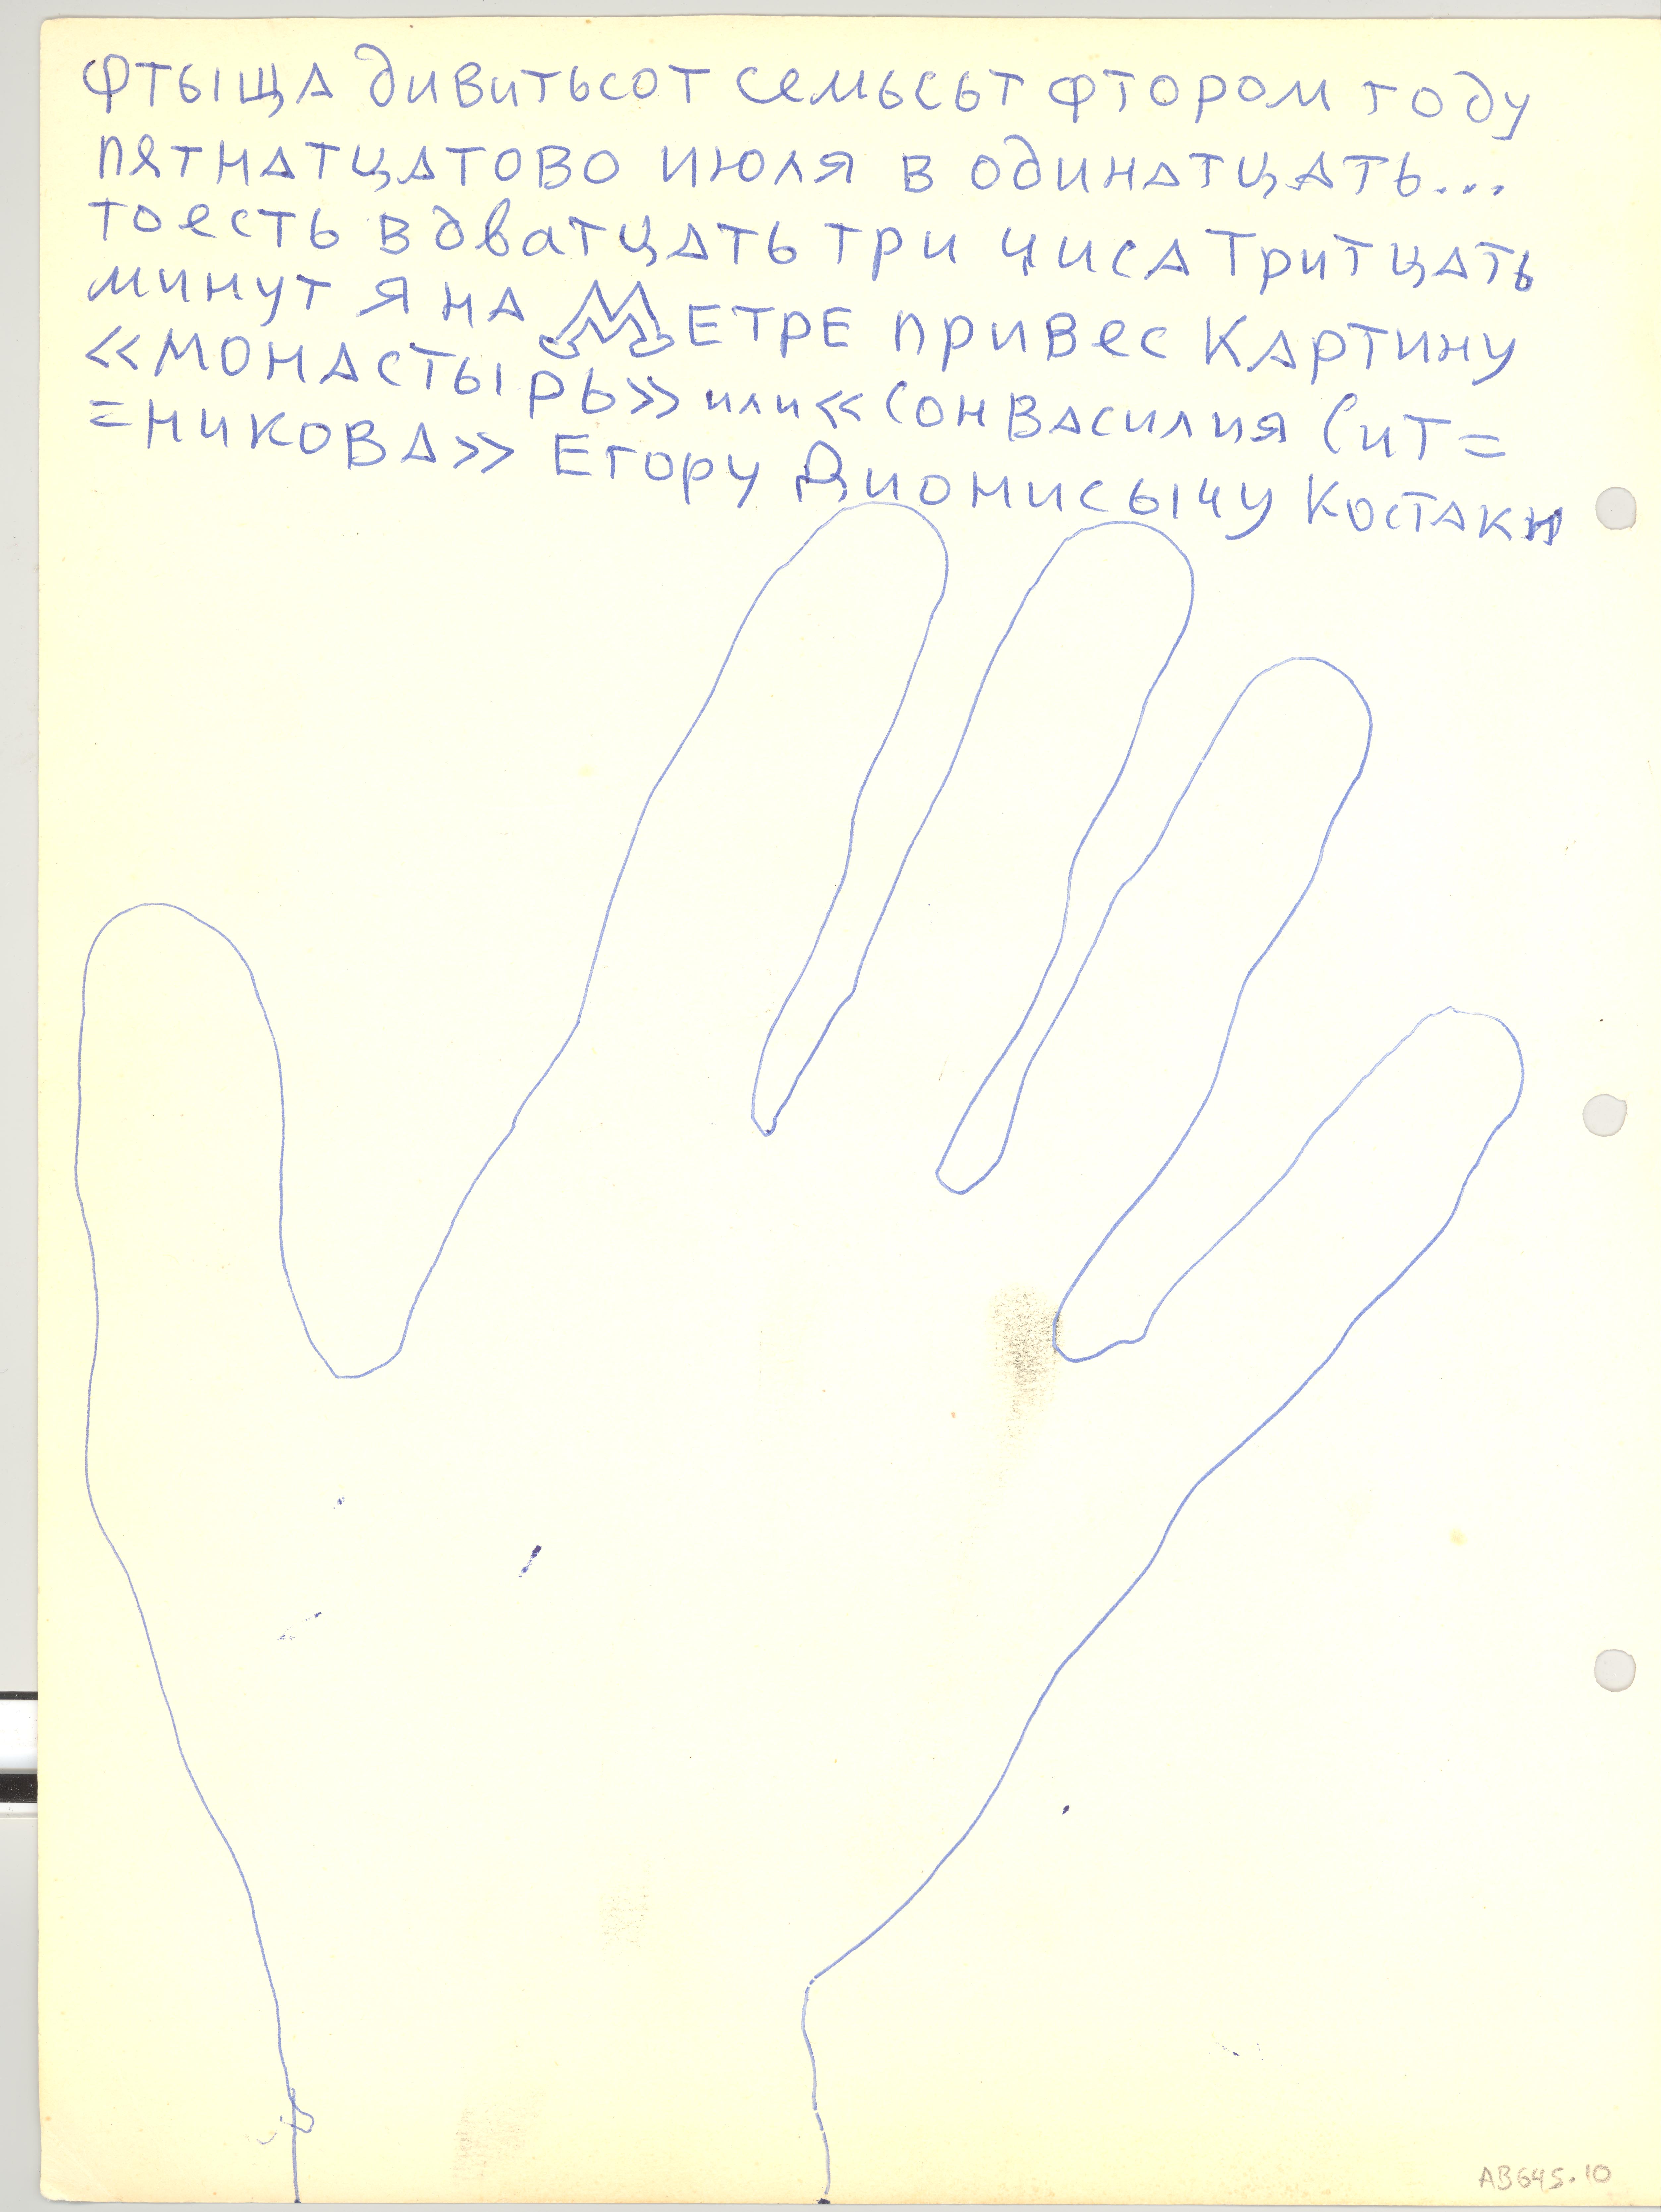 ФТЫЩА дивитьсот семьсьт фтором году
пятнатцатово июля в одинатцать...
тоесть в дватцать три чиса Тритцать
минут я на МЕТРЕ привес картину
«монастырь» или «Сон Василия Сит=
=никова» Егору Дионисычу Костаки
АВ645.10